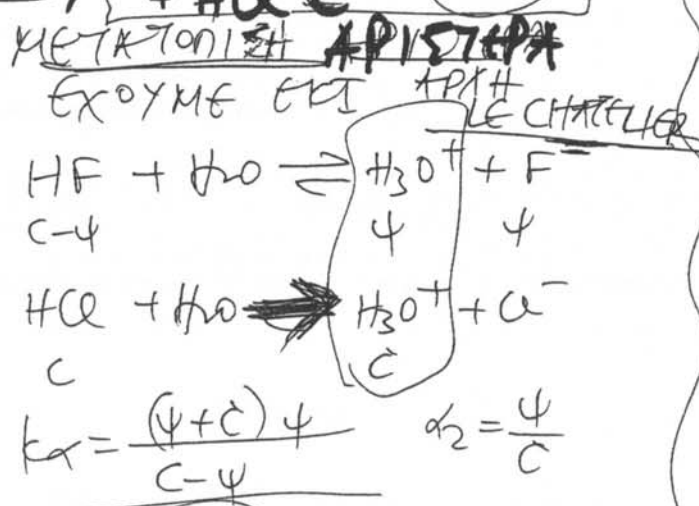 + HCl
ΜΕΤΑΤΟΠΙΣΗ ΑΡΙΣΤΕΡΑ
ΕΧΟΥΜΕ ΕΚΙ ΑΡΧΗ LE CHATELIER
HF + H2O ⇌ H3O+ + F-
C-ψ ψ ψ
HCl + H2O → H3O+ + Cl-
C C
Kα = (ψ+C)ψ / C-ψ α2 = ψ/C